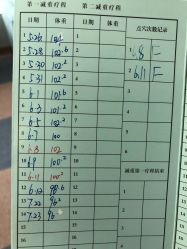 第一减重疗程 第二减重疗程
日期 体重 日期 体重 点穴次数记录
1 5.26 1 1 6.8 F
2 5.28 102.6 2
3 5.30 102.2 3 2 6.11 F
4 5.31 102.2 4
5 6.1 5 3
6 6.3 6
7 6.5 102 7 4
8 6.7 100 8
9 6.8 102 9
10 6.9 100.2 10
11 6.11 100.2 11 减重第一疗程结束
12 6.12 98.6 12
13 7.22 13
14 7.23 96 14